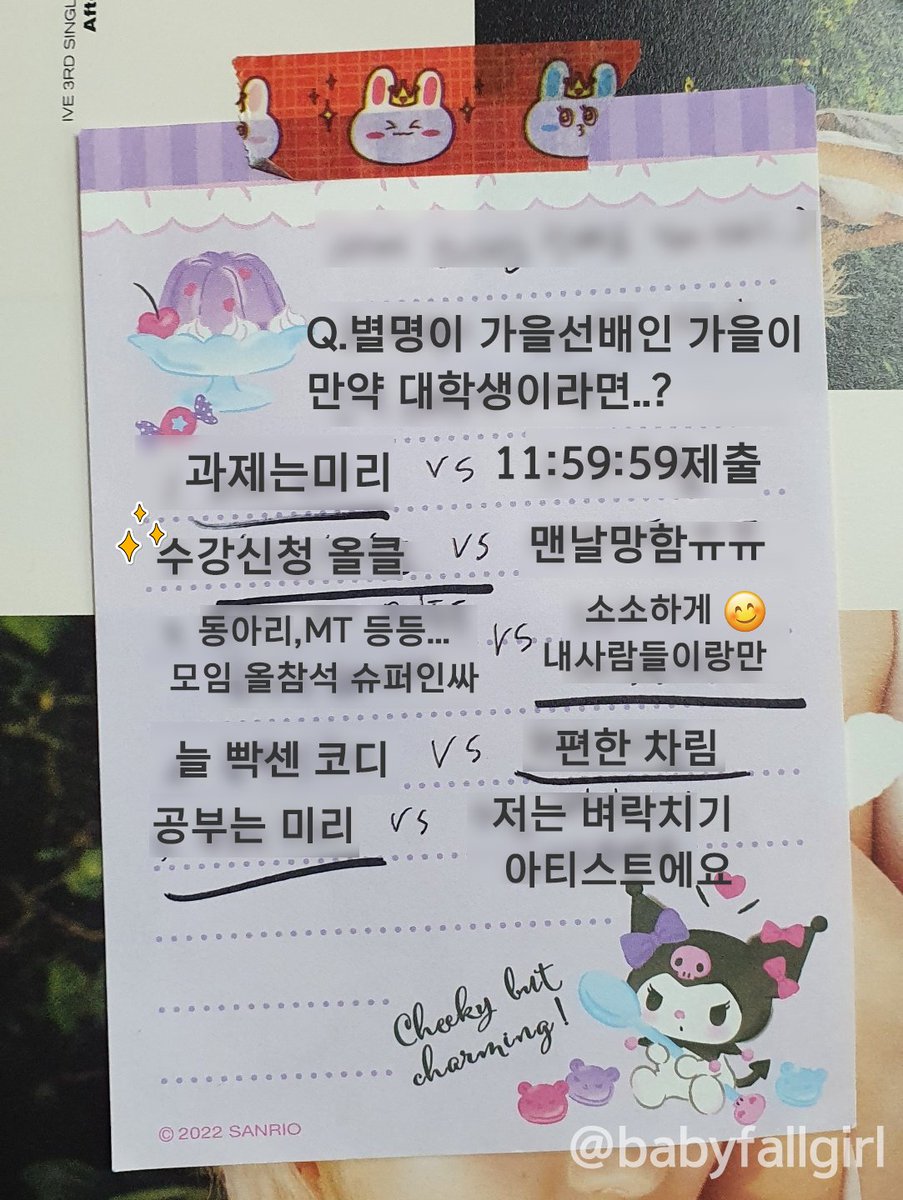 IVE 3RD SINGL
Aft
Q.별명이 가을선배인 가을이
만약 대학생이라면..?
과제는미리 vs 11:59:59제출
수강신청 올클 vs 맨날망함ㅠㅠ
동아리,MT 등등... 모임 올참석 슈퍼인싸 vs 소소하게 😊 내사람들이랑만
늘 빡센 코디 vs 편한 차림
공부는 미리 vs 저는 벼락치기
아티스트에요
Cheeky but
charming!
© 2022 SANRIO
@babyfallgirl